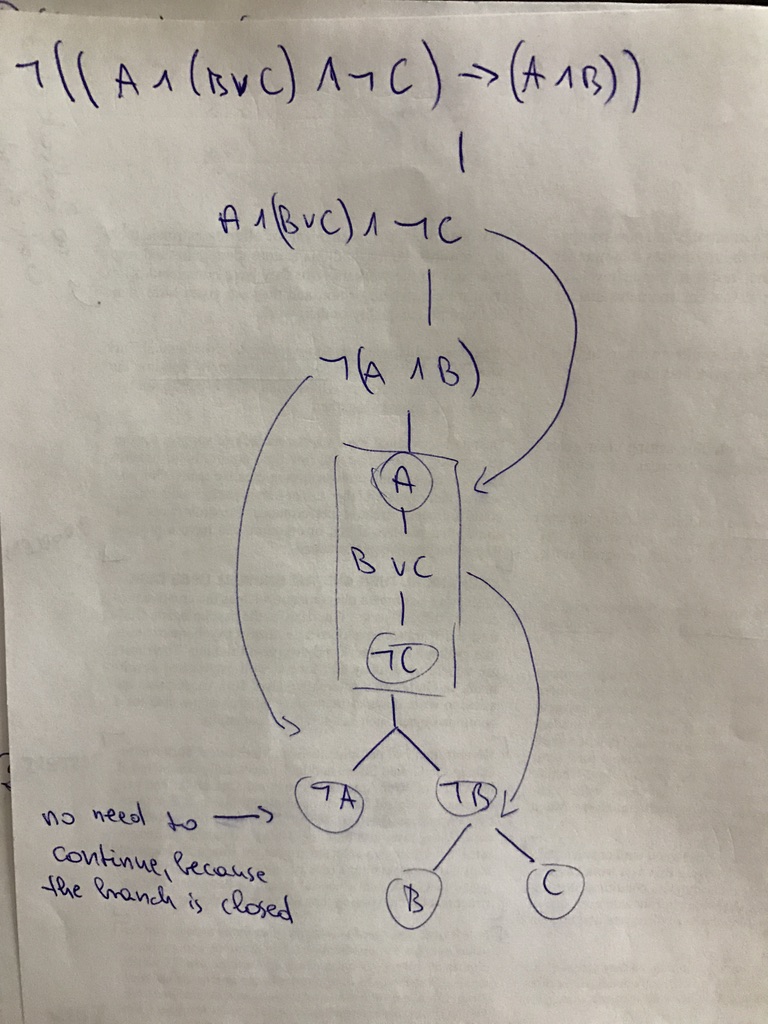 ¬((A ∧ (B∨C) ∧ ¬C) → (A ∧ B))
A ∧ (B∨C) ∧ ¬C
¬(A ∧ B)
A
B ∨ C
¬C
¬A ¬B
no need to →
continue, because
the branch is closed
B C